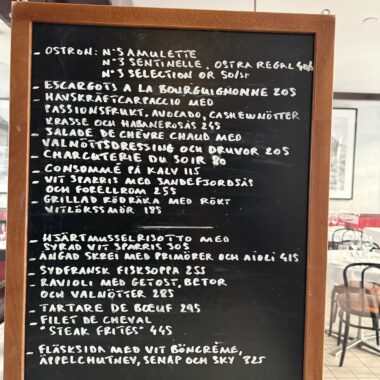 - OSTRON: N°5 AMULETTE
N°3 SENTINELLE, OSTRA REGAL 40/st
N°3 SELECTION OR 50/st
- ESCARGOTS A LA BOURGUIGNONNE 205
- HAVSKRÄFTCARPACCIO MED
PASSIONSFRUKT, AVOCADO, CASHEWNÖTTER
KRASSE OCH HABANEROSÅS 245
- SALADE DE CHÈVRE CHAUD MED
VALNÖTTSDRESSING OCH DRUVOR 205
- CHARCUTERIE DU SOIR 80
- CONSOMMÉ PÅ KALV 115
- VIT SPARRIS MED SANDEFJORDSÅS
OCH FORELLROM 255
- GRILLAD RÖDRÄKA MED RÖKT
VITLÖKSSMÖR 185
- HJÄRTMUSSELRISOTTO MED
SYRAD VIT SPARRIS 305
- ÅNGAD SKREI MED PRIMÖRER OCH AIOLI 415
- SYDFRANSK FISKSOPPA 255
- RAVIOLI MED GETOST, BETOR
OCH VALNÖTTER 285
- TARTARE DE BŒUF 295
- FILET DE CHEVAL
"STEAK FRITES" 445
- FLÄSKSIDA MED VIT BÖNCRÈME,
ÄPPELCHUTNEY, SENAP OCH SKY 325